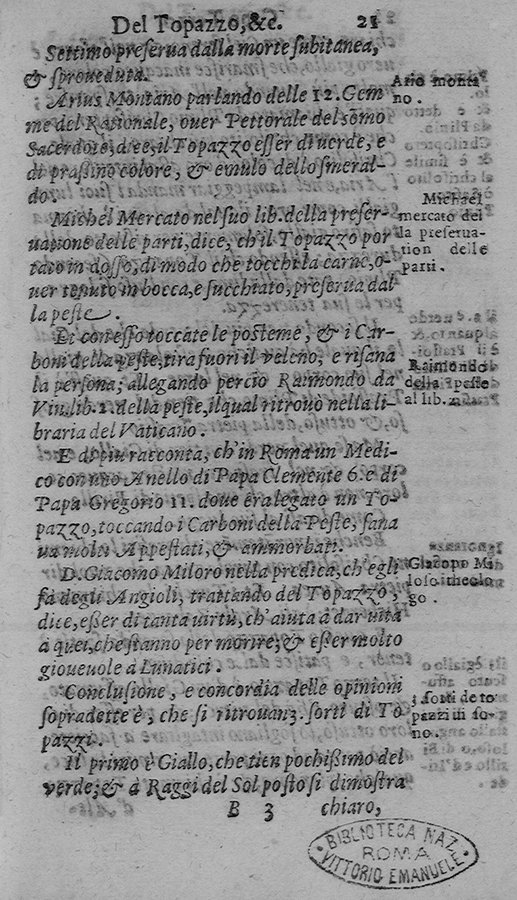 Del Topazzo, &c. 21
Settimo preserua dalla morte subitanea,
& sproueduta.
Arius Montano parlando delle 12. Gem
me del Rationale, ouer Pettorale del sõmo
Sacerdote, dice, il Topazzo esser di uerde, e
di prassino colore, & emulo dello smeral-
do.
Michel Mercato nel suo lib. della preser-
uatione delle parti, dice, ch'il Topazzo por
tato in dosso, di modo che tocchi la carne, o-
uer tenuto in bocca, e succhiato, preserua dal
la peste.
Et con esso toccate le posteme, & i Car-
boni della peste, tira fuori il veleno, e risana
la persona; allegando perciò Raimondo da
Vin. lib. 2. della peste, ilqual ritrouò nella li-
braria del Vaticano.
E di piu racconta, ch'in Roma un Medi-
co con uno Anello di Papa Clemente 6. e di
Papa Gregorio 11. doue era legato un To-
pazzo, toccando i Carboni della Peste, sana
ua molti Appestati, & ammorbati.
D. Giacomo Miloro nella predica, ch'egli
fà degli Angioli, trattando del Topazzo,
dice, esser di tanta uirtù, ch'aiuta à dar uita
à quei, che stanno per morire; & esser molto
gioueuole à Lunatici.
Conclusione, e concordia delle opinioni
sopradette è, che si ritrouan 3. sorti di To
pazzi.
Il primo è Giallo, che tien pochissimo del
verde; & à Raggi del Sol posto si dimostra
B 3 chiaro,
Ario monta
no.
Michael
mercato del
la preserua-
tion delle
parti.
Raimondo
della peste
al lib. 2.
Giacopo Mi
loso theolo
go.
3. sorti de to
pazzi si so-
no.
BIBLIOTECA NAZ.
ROMA
VITTORIO EMANUELE